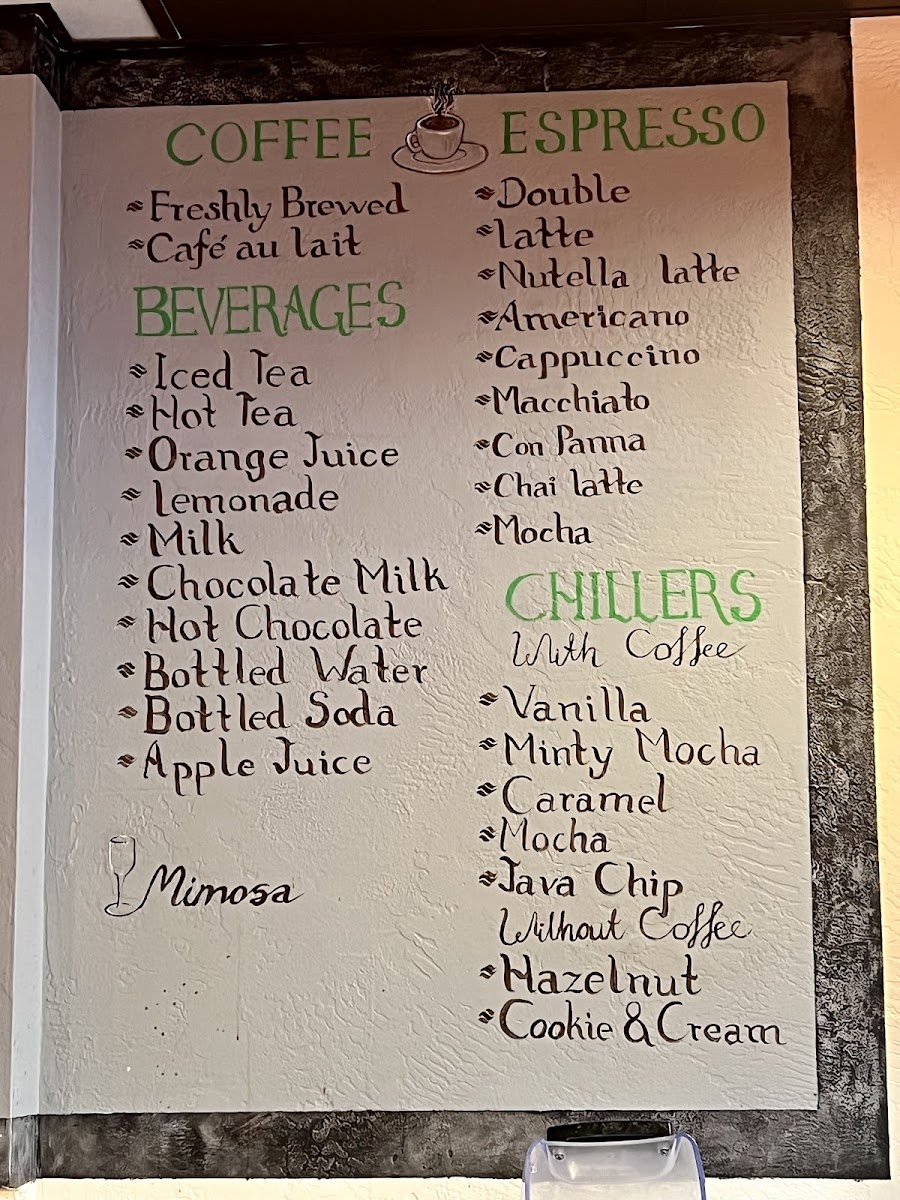 COFFEE
Freshly Brewed
Café au lait
BEVERAGES
Iced Tea
Hot Tea
Orange Juice
Lemonade
Milk
Chocolate Milk
Hot Chocolate
Bottled Water
Bottled Soda
Apple Juice
Mimosa
ESPRESSO
Double
latte
Nutella latte
Americano
Cappuccino
Macchiato
Con Panna
Chai latte
Mocha
CHILLERS
With Coffee
Vanilla
Minty Mocha
Caramel
Mocha
Java Chip
Without Coffee
Hazelnut
Cookie & Cream